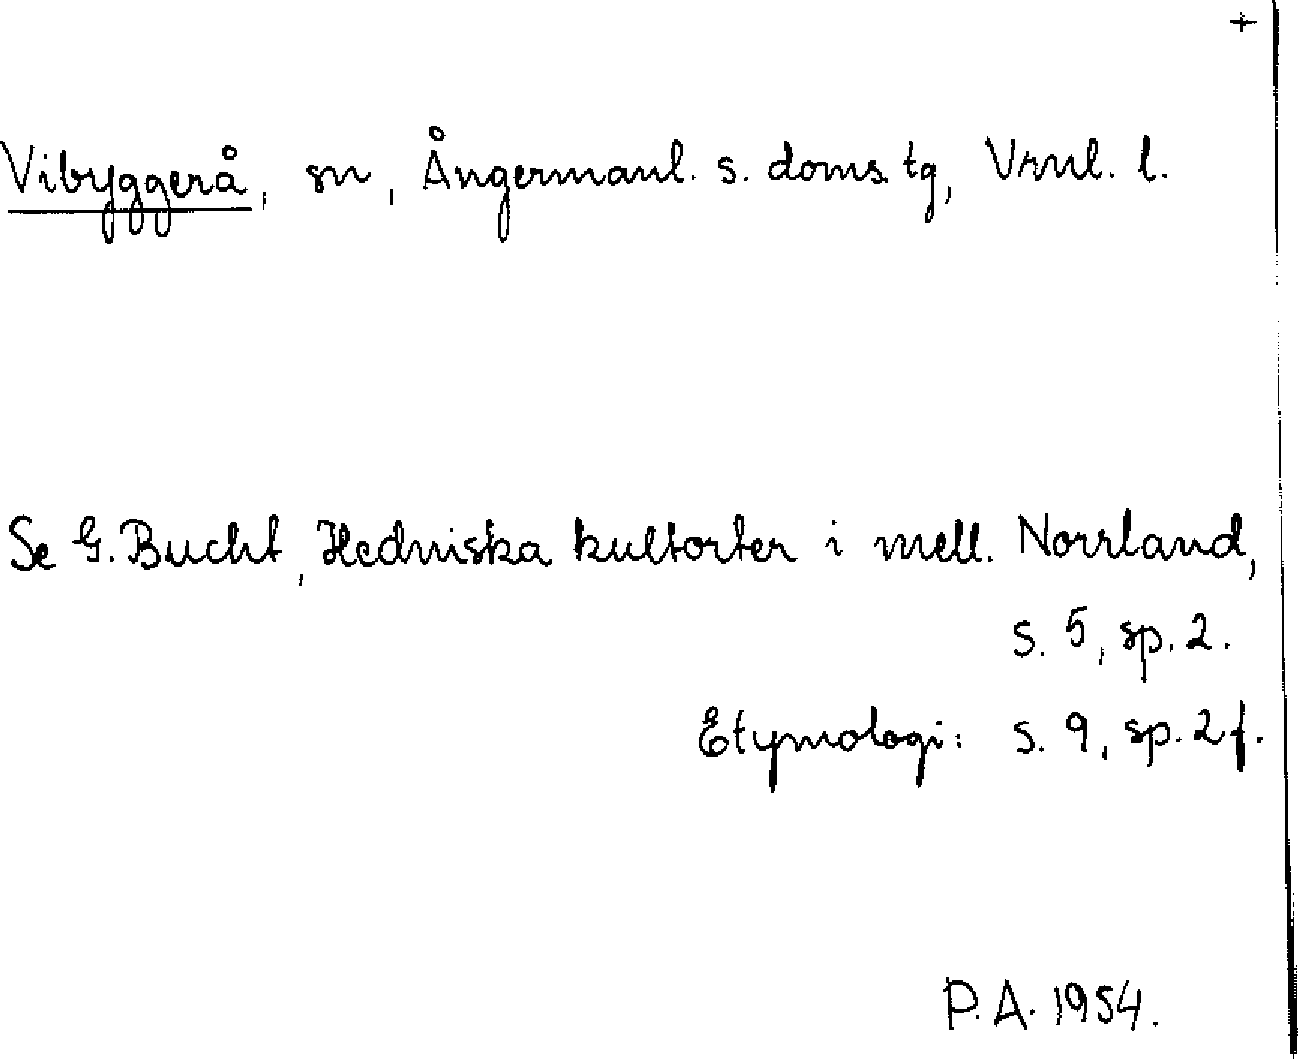 +
Vibyggerå, sn, Ångermanl. s. doms. tg, Vrnl. l.
Se G. Bucht, Hedniska kultorter i mell. Norrland,
s. 5, sp. 2.
Etymologi: s. 9, sp. 2 f.
P. A. 1954.